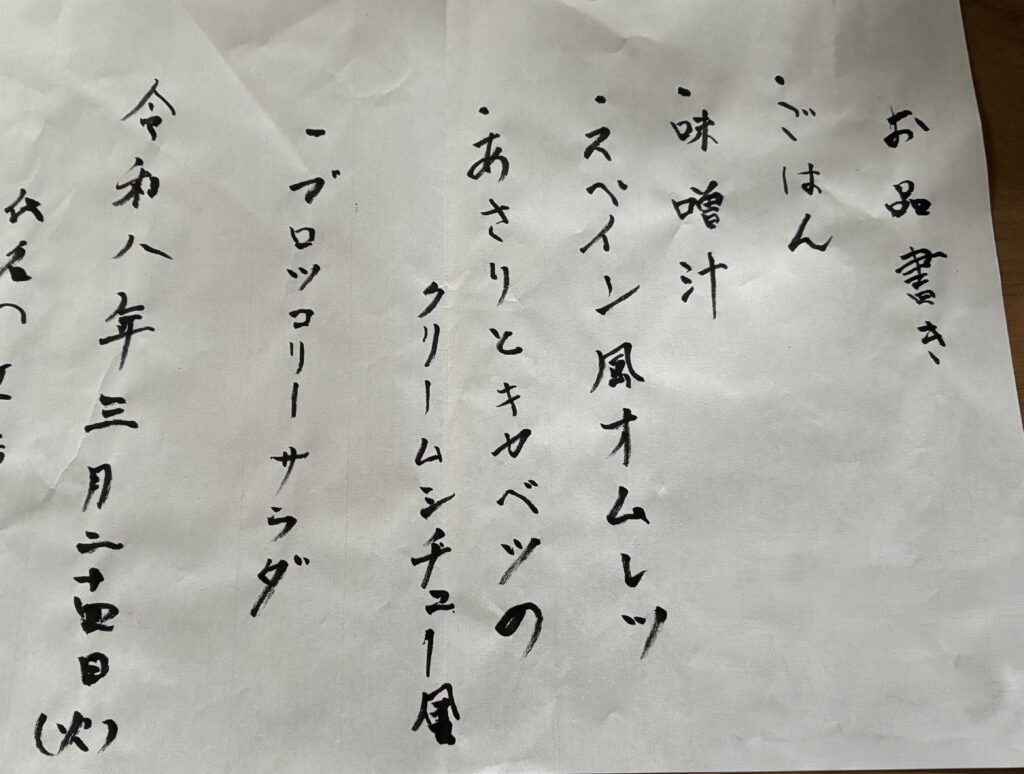 お品書き
・ごはん
・味噌汁
・スペイン風オムレツ
・あさりとキャベツの
クリームシチュー風
・ブロッコリーサラダ
令和八年三月二十四日(火)
代名の